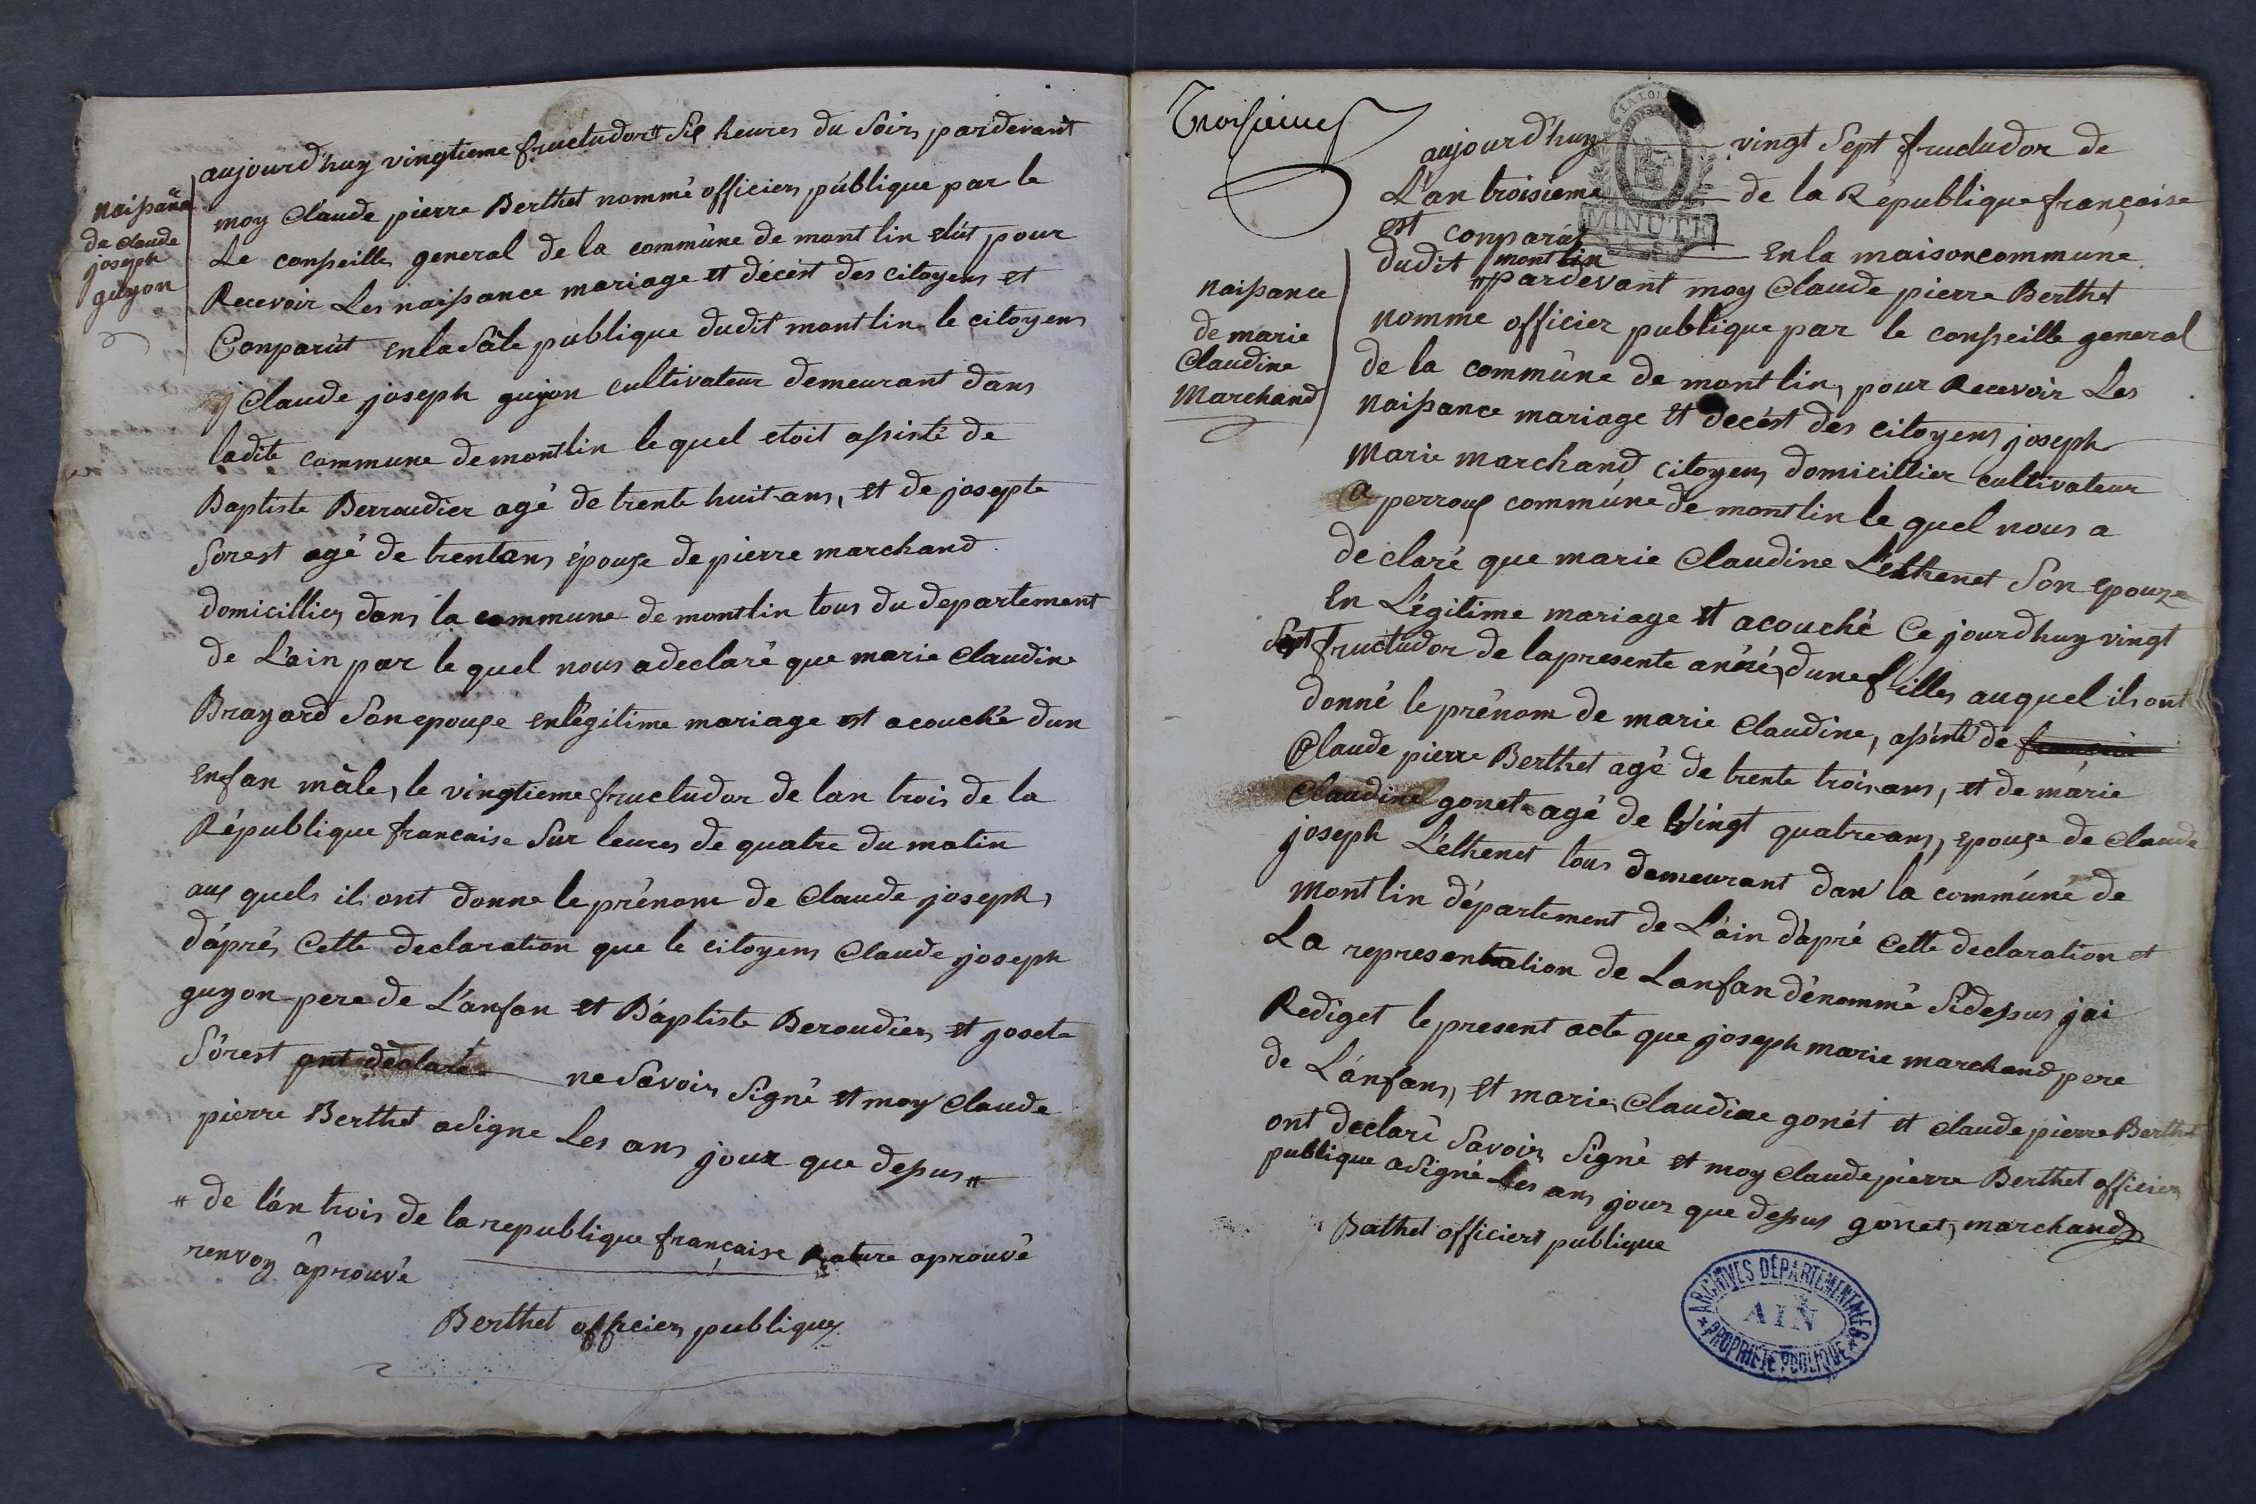 naissance
de claude
joseph
guyon
aujourd'huy vingtieme fructudor # six heures du soirs pardevant
moy Claude pierre Berthet nommé officiers publique par le
Le consseille general de la commune de montlin elût pour
Recevoir Les naissance mariage et décést des citoyens et
Conparût en la Sâle publique dudit montlin le citoyens
Claude joseph guyon cultivateur demeurant dans
ladite commune de montlin le quel etoit assisté de
Baptiste Berraudier agé de trente huit ans, et de josepte
Sorest agé de trentans épouse de pierre marchand
domicilliés dans la commune de montlin tous du departement
de L'ain par le quel nous a declaré que marie Claudine
Brayard Son epouse en légitime mariage et acouché d'un
enfan mâle, le vingtieme fructudor de lan trois de la
République francaise Sur leures de quatre du matin
aux quels ils ont donne le prénom de Claude joseph,
d'áprés Cette declaration que le citoyens Claude joseph
guyon pere de L'anfan et Báptiste Beroudiers et josete
Sorest ont déclaré ne Savoirs Signé et moy Claude
pierre Berthet a Signe Les ans jour que dessus #
# de l'án trois de la republique française Rature aprouvé
renvoy âprouvé
Berthet officiers publique
Troisieme
LA LOI
MINUTE
naissance
de marie
Claudine
Marchand
aujourd'huy vingt Sept fructudor de
L'an troisieme de la République française
est conparût
dudit montlin en la maison commune
# pardevant moy Claude pierre Berthet
nomme officier publique par le consseille general
de la commûne de montlin, pour Recevoir Les
naissance mariage et decést des citoyens joseph
Marie marchand citoyens domicillier cultivateur
a perroux commúne de montlin le quel nous a
de claré que marie Claudine L'ethenet Son epouze
en Légitime mariage et acouché Ce jourdhuy vingt
Sept fructudor de la presente année, dune filles auquel ils ont
donné le prénom de marie Claudine, assisté de
Claude pierre Berthet agé de trente trois ans, et de márie
Claudine gonet agé de Vingt quatre ans, epouse de Claude
joseph L'ethenet tous demeurant dan la commúne de
montlin département de L'áin d'apré Cette declaration et
La representation de Lanfan dénommé Sidessus jai
Rediget le present acte que joseph marie marchand pere
de L'ánfans, et marie Claudine gonét et claude pierre Berthet
ont declaré Savoirs Signé et moy Claude pierre Berthet officiers
publique a Signé Les ans jour que dessus gonet, marchand
Bathet officiers publique
ARCHIVES DÉPARTEMENTALES
AIN
PROPRIÉTÉ PUBLIQUE